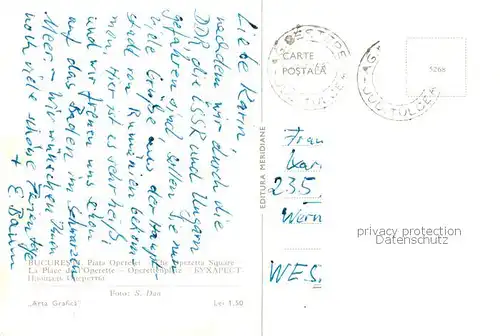 Liebe Karin,
nachdem wir durch die
DDR, die ČSSR und Ungarn
gefahren sind, sollen Sie nun
viele Grüße aus der Haupt-
stadt von Rumänien bekom-
men. Hier ist es sehr heiß,
und wir freuen uns schon
auf das Baden im Schwarzen
Meer - wir wünschen Ihnen
noch viele schöne Ferientage
+ E. Baum
BUCUREȘTI. Piața Operetei - The Operetta Square -
La Place de l'Operette - Operettenplatz - БУХАРЕСТ-
Площадь Оперетты
Foto: S. Dan
„Arta Grafică" Lei 1.50
EDITURA MERIDIANE
CARTE
POȘTALĂ
JUD. TULCEA
5268
Frau
Kar
235
Wern
WES
privacy protection
Datenschutz